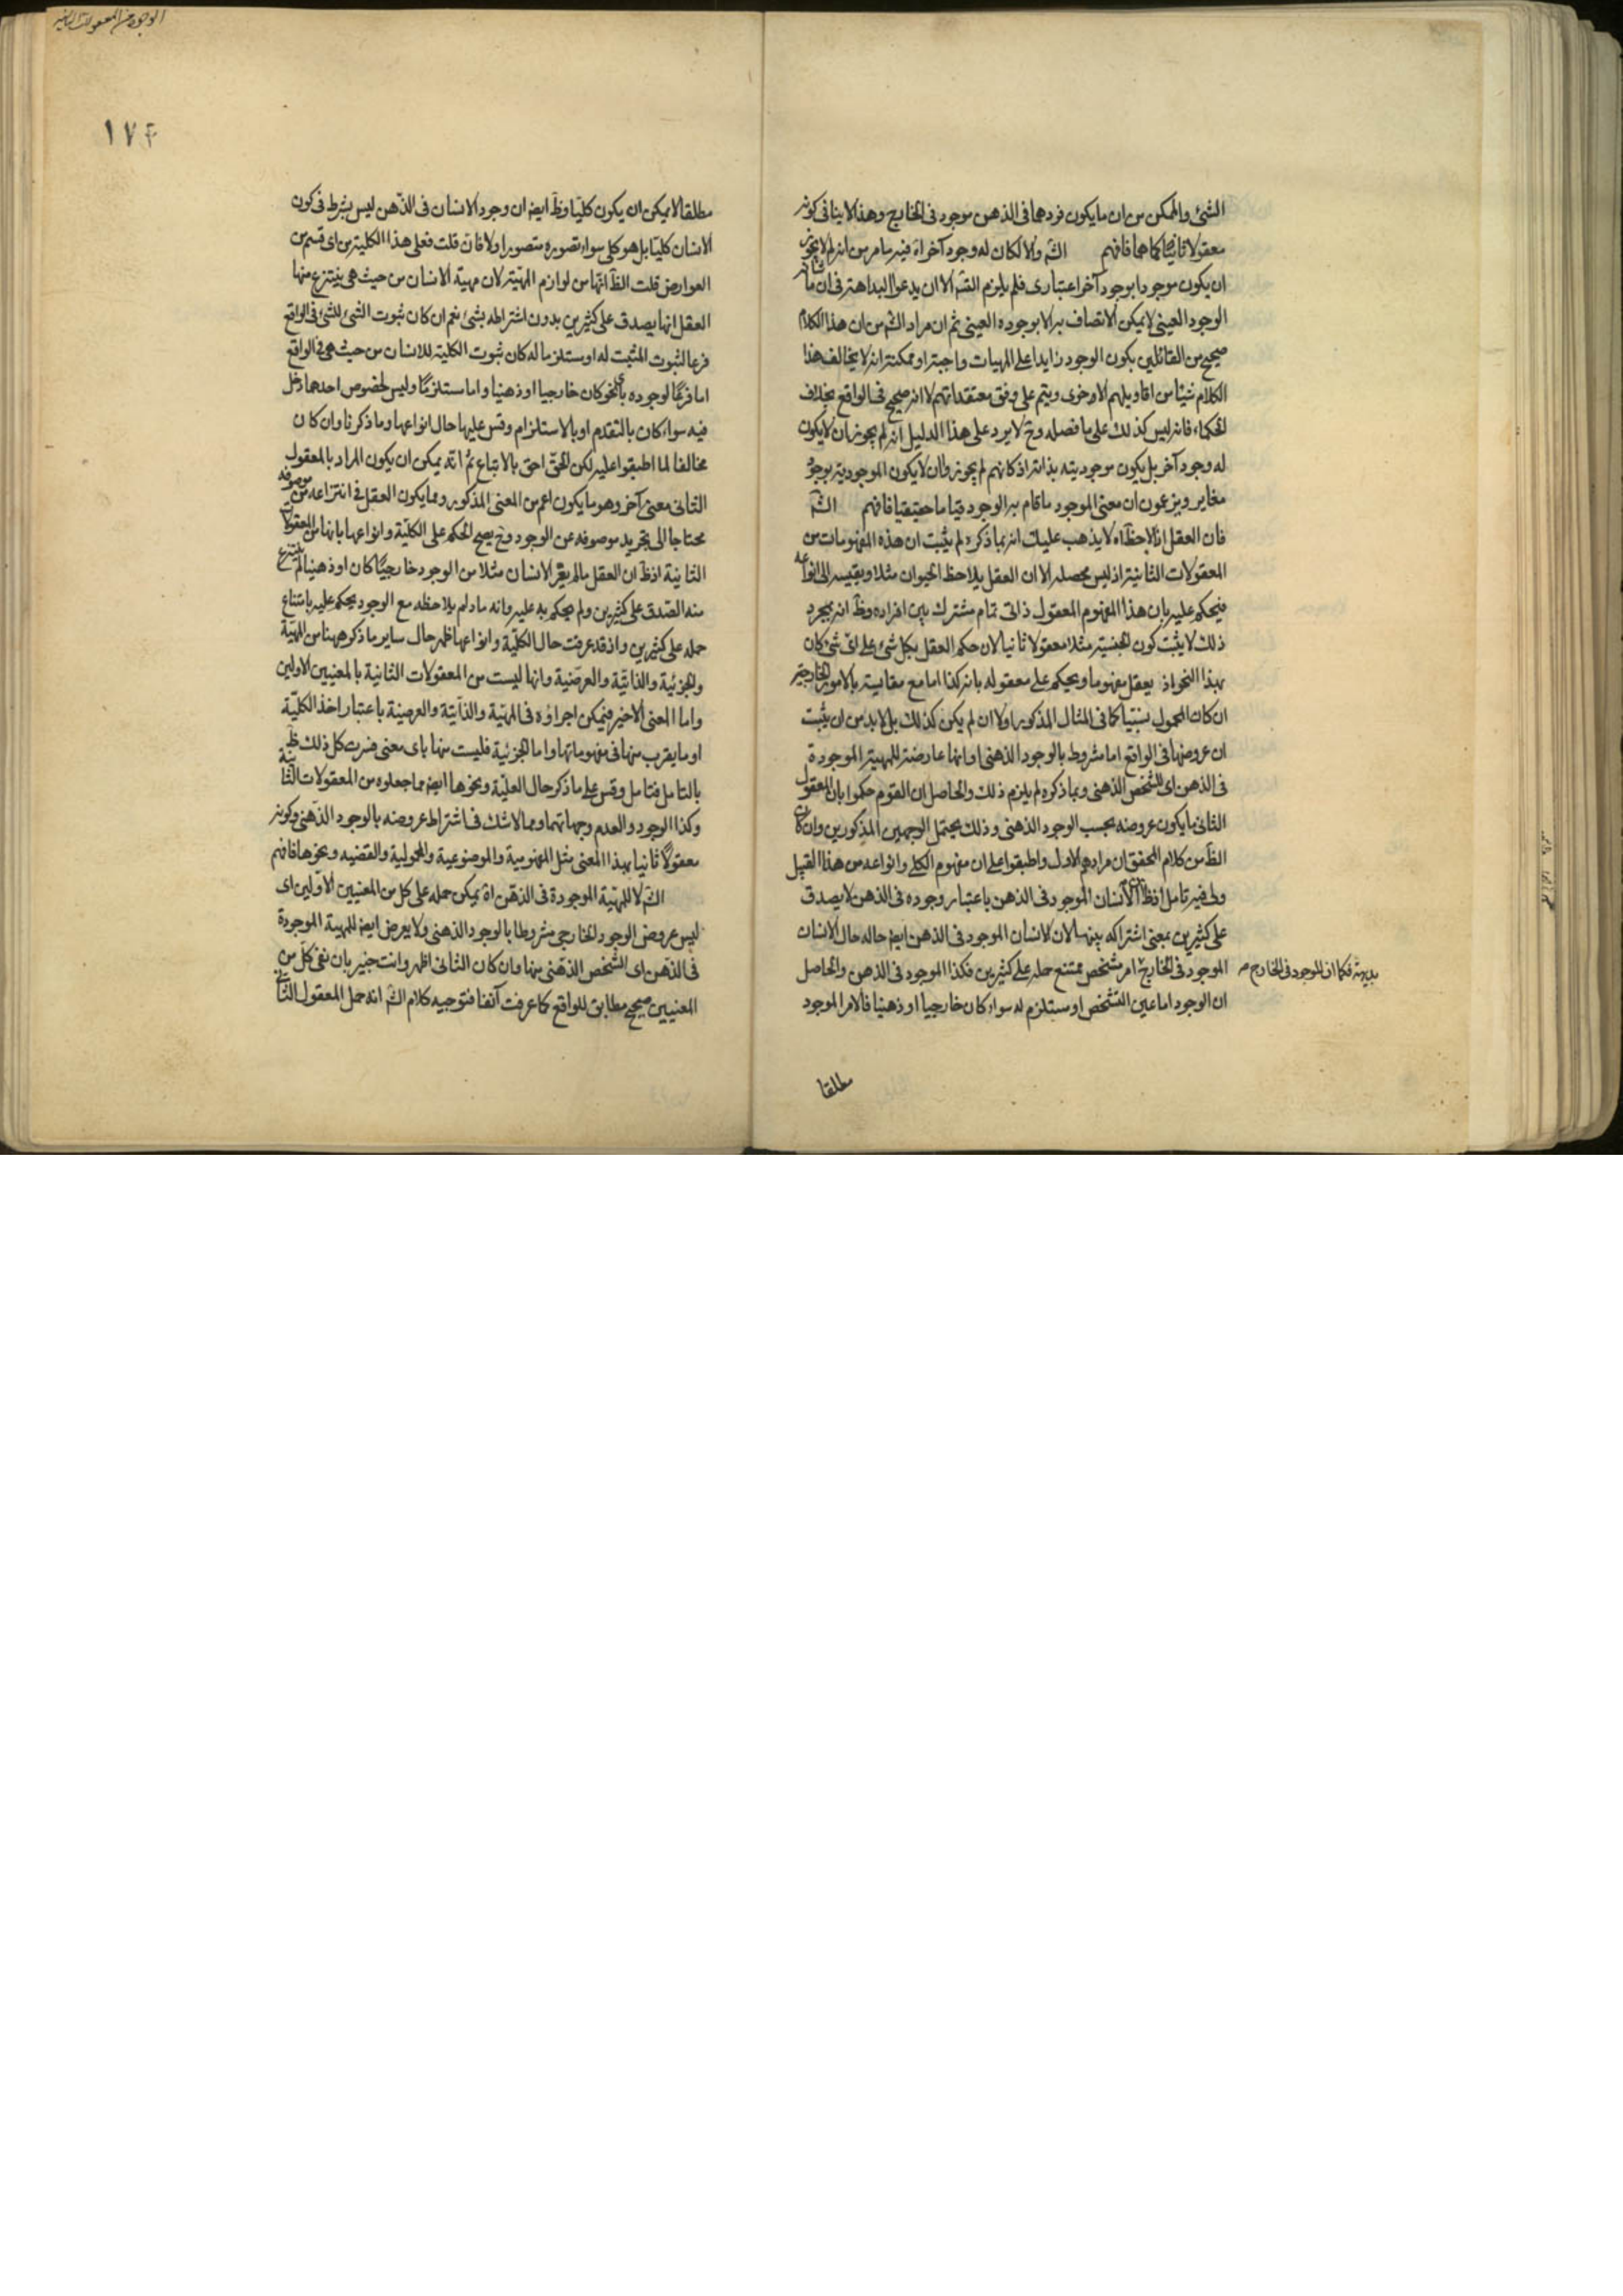 الشئ والممكن من ان ما يكون فردهما فى الذهن موجود فى الخارج وهذا لا ينافى كونه
معقولا ثانيا كما هما فافهم الشـ والا لكان له وجود آخر اه فيه ما مر من انه لم لا يجوز
ان يكون موجودا بوجود آخر اعتبارى فلم يلزم التسـ الا ان يدعوا البداهة فى ان ما شانه
الوجود العينى لا يمكن الاتصاف به الا بوجوده العينى ثم ان مراد الشـ من ان هذا الكلام
صحيح من القائلين بكون الوجود زايدا على المهيات واجبة او ممكنة انه لا يخالف هذا
الكلام شيئا من اقاويلهم الاخرى ويتم على وفق معتقداتهم لا انه صحيح فى الواقع بخلاف
الحكماء فانه ليس كذلك على ما فصله وح لا يرد على هذا الدليل انه لم يجوز ان لا يكون
له وجود آخر بل يكون موجوديته بذاته اذ كانهم لم يجوزوا ان لا يكون الموجودية بوجود
مغاير ويزعمون ان معنى الموجود ما قام به الوجود قياما حقيقيا فافهم الشـ
فان العقل اذا لاحظ اه لا يذهب عليك انه بما ذكره لم يثبت ان هذه المفهومات من
المعقولات الثانية اذ ليس محصله الا ان العقل يلاحظ الحيوان مثلا ويقيسه الى انواعه
فيحكم عليه بان هذا المفهوم المعقول ذاتى تمام مشترك بين افراده وظ انه بمجرد
ذلك لا يثبت كون الجنسية مثلا معقولا ثانيا لان حكم العقل بكل شئ على اى شئ كان
بهذا النحو اذ يعقل مفهوما ويحكم على معقوله بانه كذا اما مع مقايسة بالامور الخارجية
ان كان المحمول نسبيا كما فى المثال المذكور او لا ان لم يكن كذلك بل لا بد من ان يثبت
ان عروضها فى الواقع اما مشروط بالوجود الذهنى او انها عارضة للمهية الموجودة
فى الذهن اى الشخص الذهنى وبما ذكره لم يلزم ذلك والحاصل ان القوم حكموا بان المعقول
الثانى ما يكون عروضه بحسب الوجود الذهنى وذلك يحتمل الوجهين المذكورين وان كان
الظ من كلام المحقق ان مرادهم الاول واطبقوا على ان مفهوم الكلى وانواعه من هذا القبيل
ولى فيه تامل اذ ظ ان الانسان الموجود فى الذهن باعتبار وجوده فى الذهن لا يصدق
على كثيرين بمعنى اشتراكه بينها لان الانسان الموجود فى الذهن ايض حاله حال الانسان
الموجود فى الخارج امر متشخص ممتنع حمله على كثيرين فكذا الموجود فى الذهن والحاصل
بديهة فكما ان الموجود فى الخارج
ان الوجود اما عين التشخص او مستلزم له سواء كان خارجيا او ذهنيا فالامر الموجود
مطلقا
الوجود من المعقولات الثانية
١٧٤
مطلقا لا يمكن ان يكون كليا وظ ايض ان وجود الانسان فى الذهن ليس بشرط فى كون
الانسان كليا بل هو كلى سواء تصوره متصور او لا فان قلت فعلى هذا الكلية من اى قسم من
العوارض قلت الظ انها من لوازم المهية لان مهية الانسان من حيث هى ينتزع منها
العقل انها يصدق على كثيرين بدون اشتراطه بشئ نعم ان كان ثبوت الشئ للشئ فى الواقع
فرعا لثبوت المثبت له او مستلزما له كان ثبوت الكلية للانسان من حيث هى فى الواقع
اما فرعا لوجوده باى نحو كان خارجيا او ذهنيا واما مستلزما وليس لخصوص احدهما دخل
فيه سواء كان بالتقدم او بالاستلزام وقس عليها حال انواعها وما ذكرنا وان كان
مخالفا لما اطبقوا عليه لكن الحق احق بالاتباع ثم انه يمكن ان يكون المراد بالمعقول
الثانى معنى آخر وهو ما يكون اعم من المعنى المذكور ومما يكون العقل فى انتزاعه من موصوفه
محتاجا الى تجريد موصوفه عن الوجود وح يصح الحكم على الكلية وانواعها بانها من المعقولات
الثانية اذ ظ ان العقل ما لم يعر الانسان مثلا من الوجود خارجيا كان او ذهنيا لم ينتزع
منه الصدق على كثيرين ولم يحكم به عليه وانه ما دام يلاحظه مع الوجود يحكم عليه بامتناع
حمله على كثيرين واذ قد عرفت حال الكلية وانواعها ظهر حال ساير ما ذكر ههنا من المهية
والجزئية والذاتية والعرضية وانها ليست من المعقولات الثانية بالمعنيين الاولين
واما المعنى الاخير فيمكن اجراؤه فى المهية والذاتية والعرضية باعتبار اخذ الكلية
او ما يقرب منها فى مفهوماتها واما الجزئية فليست منها باى معنى فسرت كل ذلك ظ
بالتامل فتامل وقس على ما ذكر حال العلية ونحوها ايض مما جعلوه من المعقولات الثانية
وكذا الوجود والعدم وجهاتهما ومما لا شك فى اشتراط عروضه بالوجود الذهنى وكونه
معقولا ثانيا بهذا المعنى مثل المفهومية والموضوعية والمحمولية والقضيه ونحوها فافهم
الشـ لا للمهية الموجودة فى الذهن اه يمكن حمله على كل من المعنيين الاولين اى
ليس عروض الوجود الخارجى مشروطا بالوجود الذهنى ولا يعرض ايض للمهية الموجودة
فى الذهن اى الشخص الذهنى منها وان كان الثانى اظهر وانت خبير بان نفى كل من
المعنيين صحيح مطابق للواقع كما عرفت آنفا فتوجيه كلام الشـ انه حمل المعقول الثانى